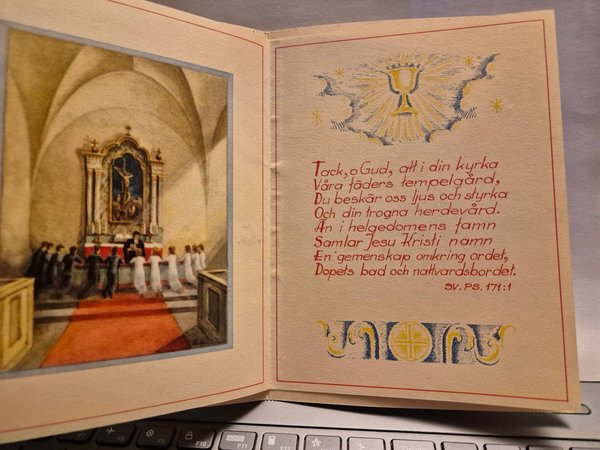 Tack, o Gud, att i din kyrka
Våra fäders tempelgård,
Du beskär oss ljus och styrka
Och din trogna herdevård.
Än i helgedomens famn
Samlar Jesu Kristi namn
En gemenskap omkring ordet,
Dopets bad och nattvardsbordet.
SV. PS. 171:1
F10
F11
F12
Delete